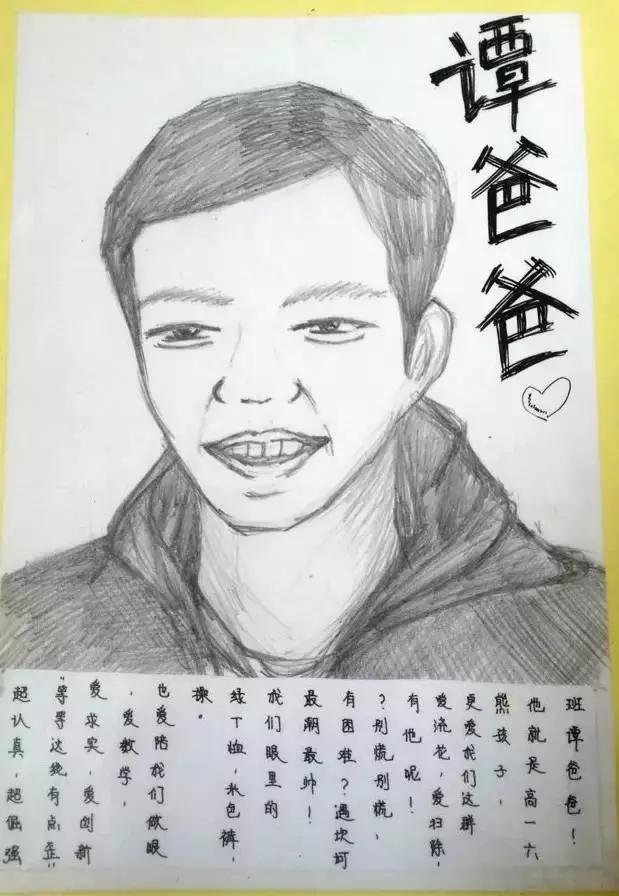 谭爸爸
超认真，超倔强
“等等这线有点歪”
爱求实，爱创新
，爱教学，
也爱陪我们做眼
操。
绿T恤，米色裤，
我们眼里的
最潮最帅！
有困难？遇坎坷
？别慌别慌，
有他呢！
爱浇花，爱扫除，
更爱我们这群
熊孩子，
他就是高一六
班谭爸爸！